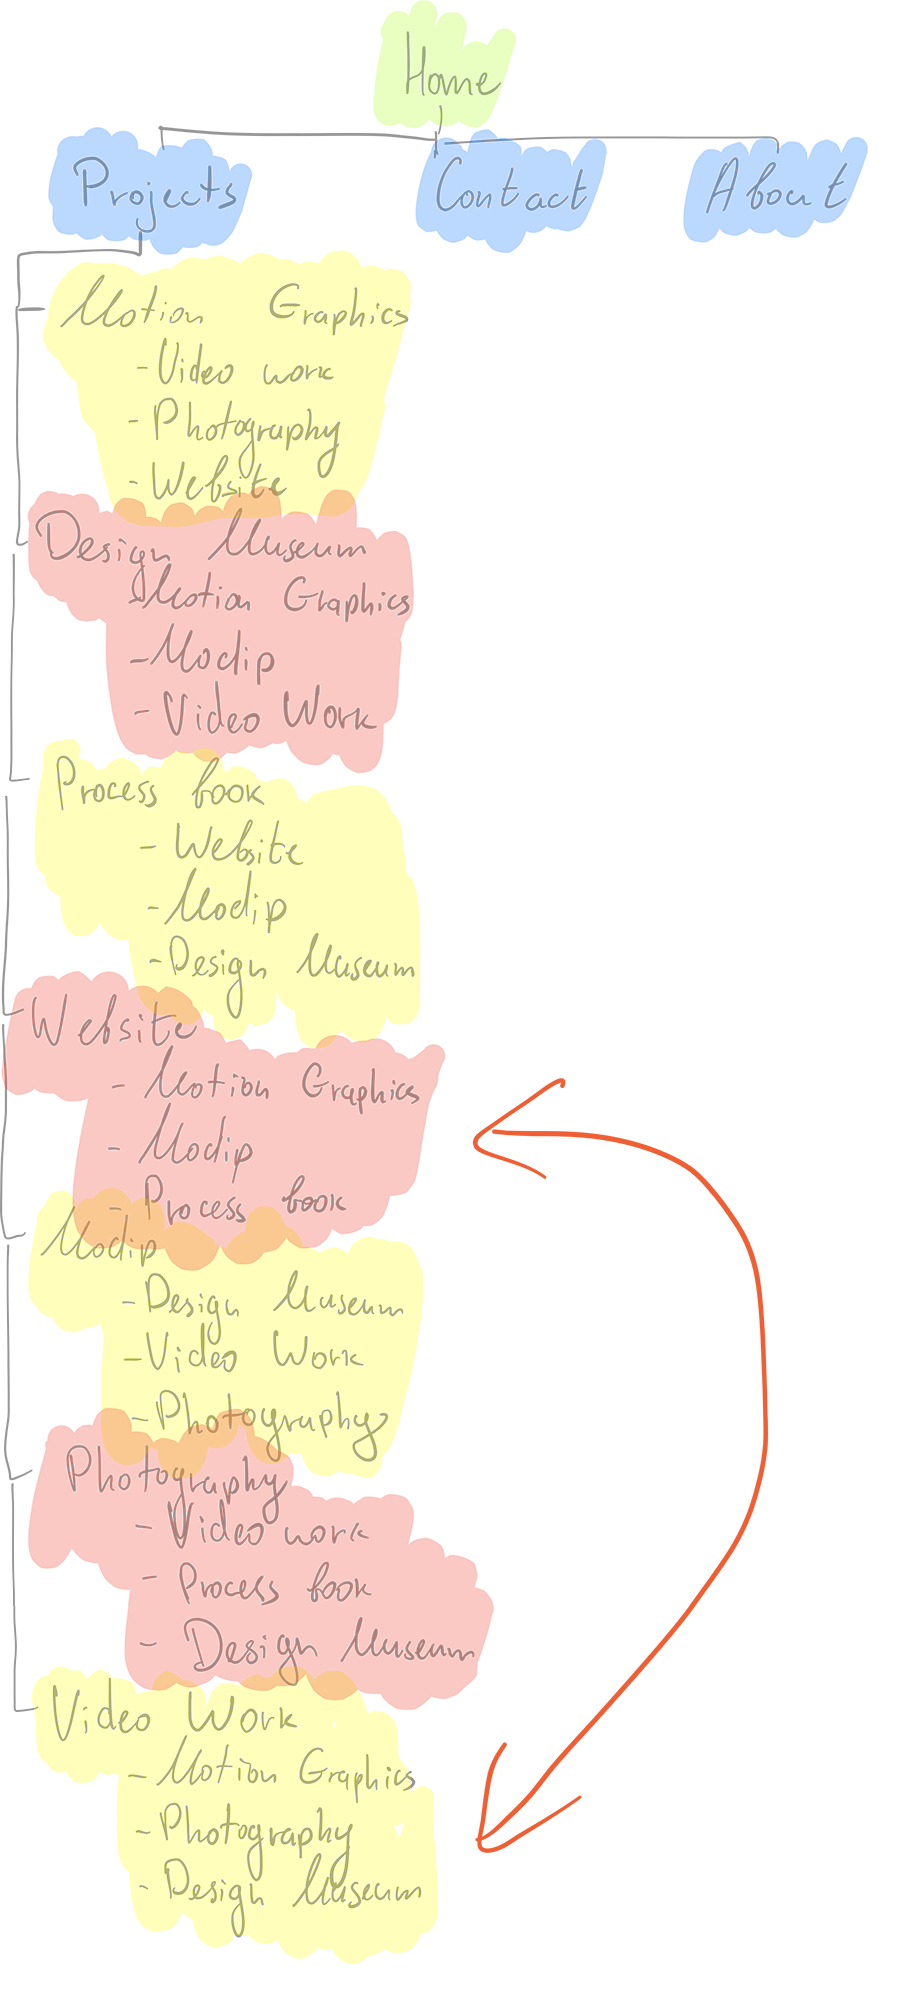 Home
Projects Contact About
Motion Graphics
- Video work
- Photography
- Website
Design Museum
- Motion Graphics
- Modip
- Video Work
Process book
- Website
- Modip
- Design Museum
Website
- Motion Graphics
- Modip
- Process book
Modip
- Design Museum
- Video Work
- Photography
Photography
- Video work
- Process book
- Design Museum
Video Work
- Motion Graphics
- Photography
- Design Museum